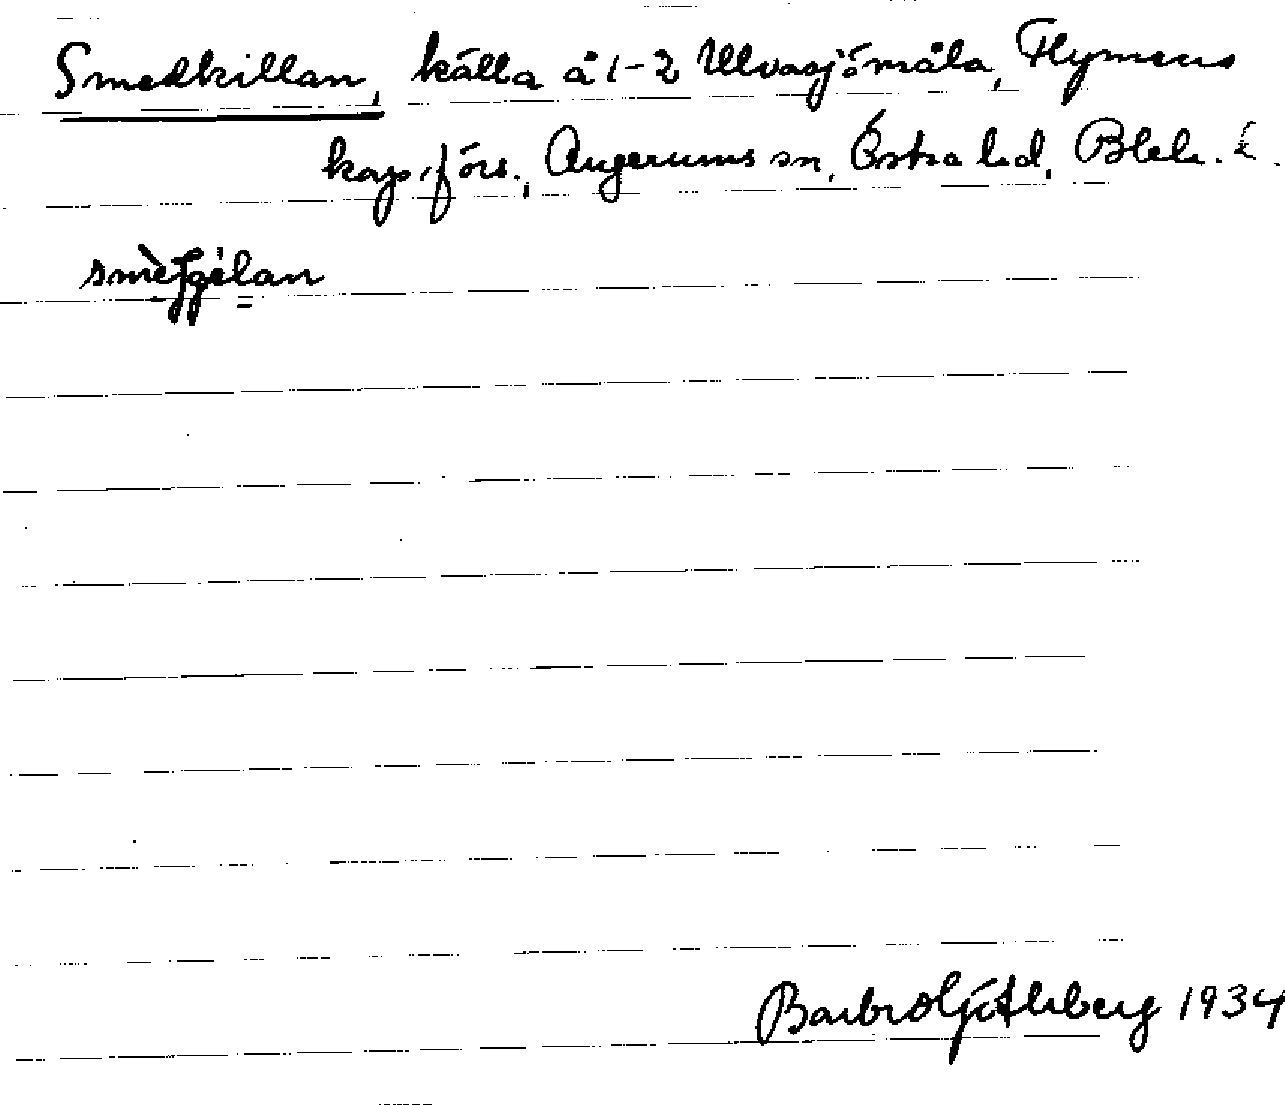 Smedkillan, källa å 1-2 Ulvasjömåla, Flymens
kap.förs., Augerums sn, Östra hd, Blek. l.
Barbro Göthberg 1934